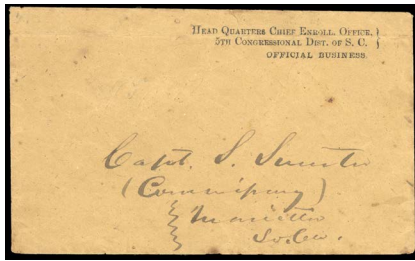 HEAD QUARTERS CHIEF ENROLL. OFFICE, }
5TH CONGRESSIONAL DIST. OF S. C. {
OFFICIAL BUSINESS.
Capt. S. Sumter
(Commissary)
Marietta